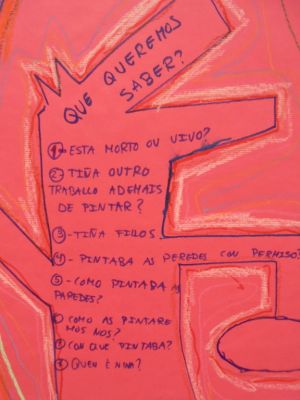 QUE QUEREMOS
SABER?
1- ESTA MORTO OU VIVO?
2- TIÑA OUTRO
TRABALLO ADEMAIS
DE PINTAR?
3- TIÑA FILLOS
4- PINTABA AS PEREDES CON PERMISO?
5- COMO PINTABA AS
PAREDES?
COMO AS PINTARE
MOS NOS?
CON QUE PINTABA?
QUEN É NINA?